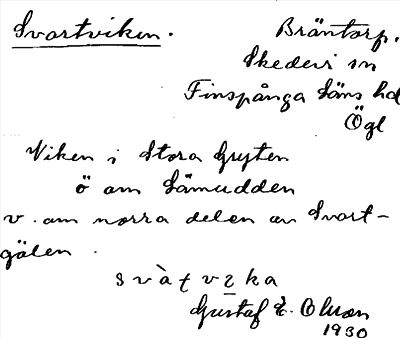 Svartviken. Bräntorp.
Skedevi sn
Finspånga läns hd
Ögl
Viken i Stora Gryten
ö om Sämudden
v. om norra delen av Svart-
gölen.
Gustaf E. Olson
1930